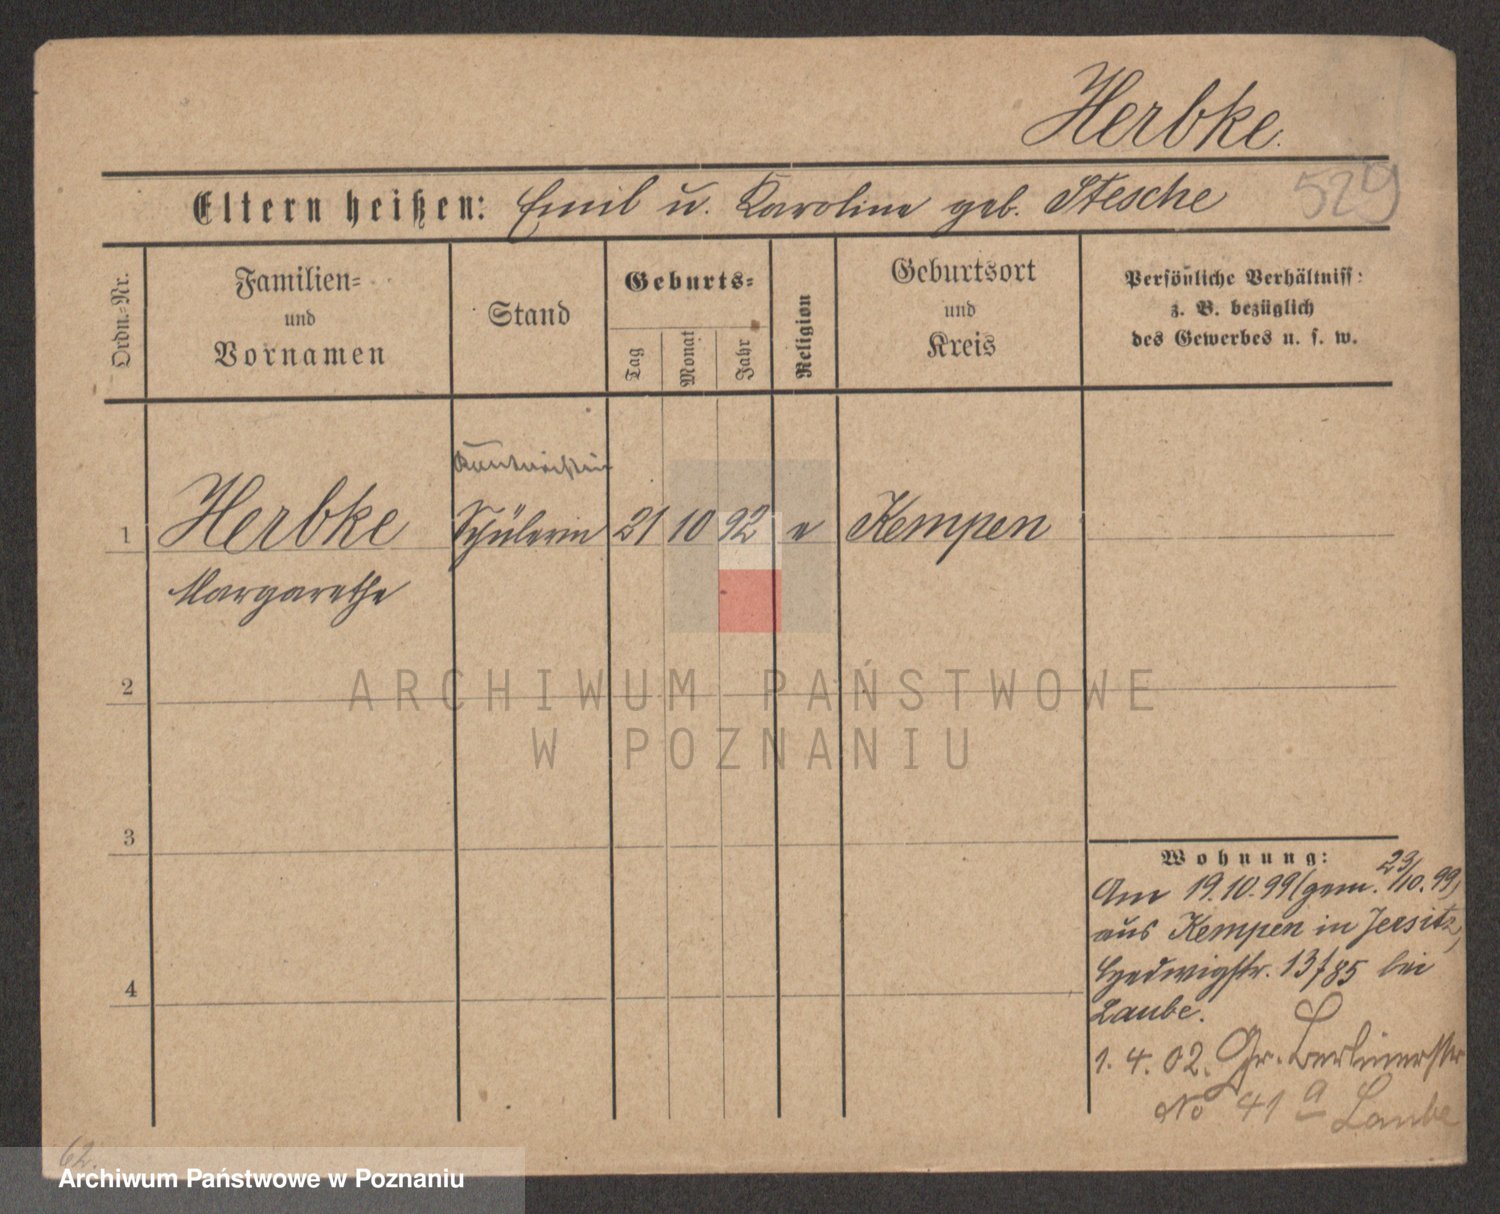 Herbke.
529
Eltern heißen: Emil u. Karoline geb. Stesche
Ordn.-Nr.
Familien-
und
Vornamen
Stand
Geburts-
Tag
Monat
Jahr
Religion
Geburtsort
und
Kreis
Persönliche Verhältniss:
z. B. bezüglich
des Gewerbes u. s. w.
1 Herbke Schülerin 21 10 92 e Kempen
Margarethe
2
ARCHIWUM PAŃSTWOWE
W POZNANIU
3
4
Wohnung:
Am 19.10.99 (gem. 23/10.99)
aus Kempen in Jersitz,
Hedwigstr. 13/85 bei
Laube.
1. 4. 02. Gr. Berlinerstr
No 41 a Laube
62.
Archiwum Państwowe w Poznaniu